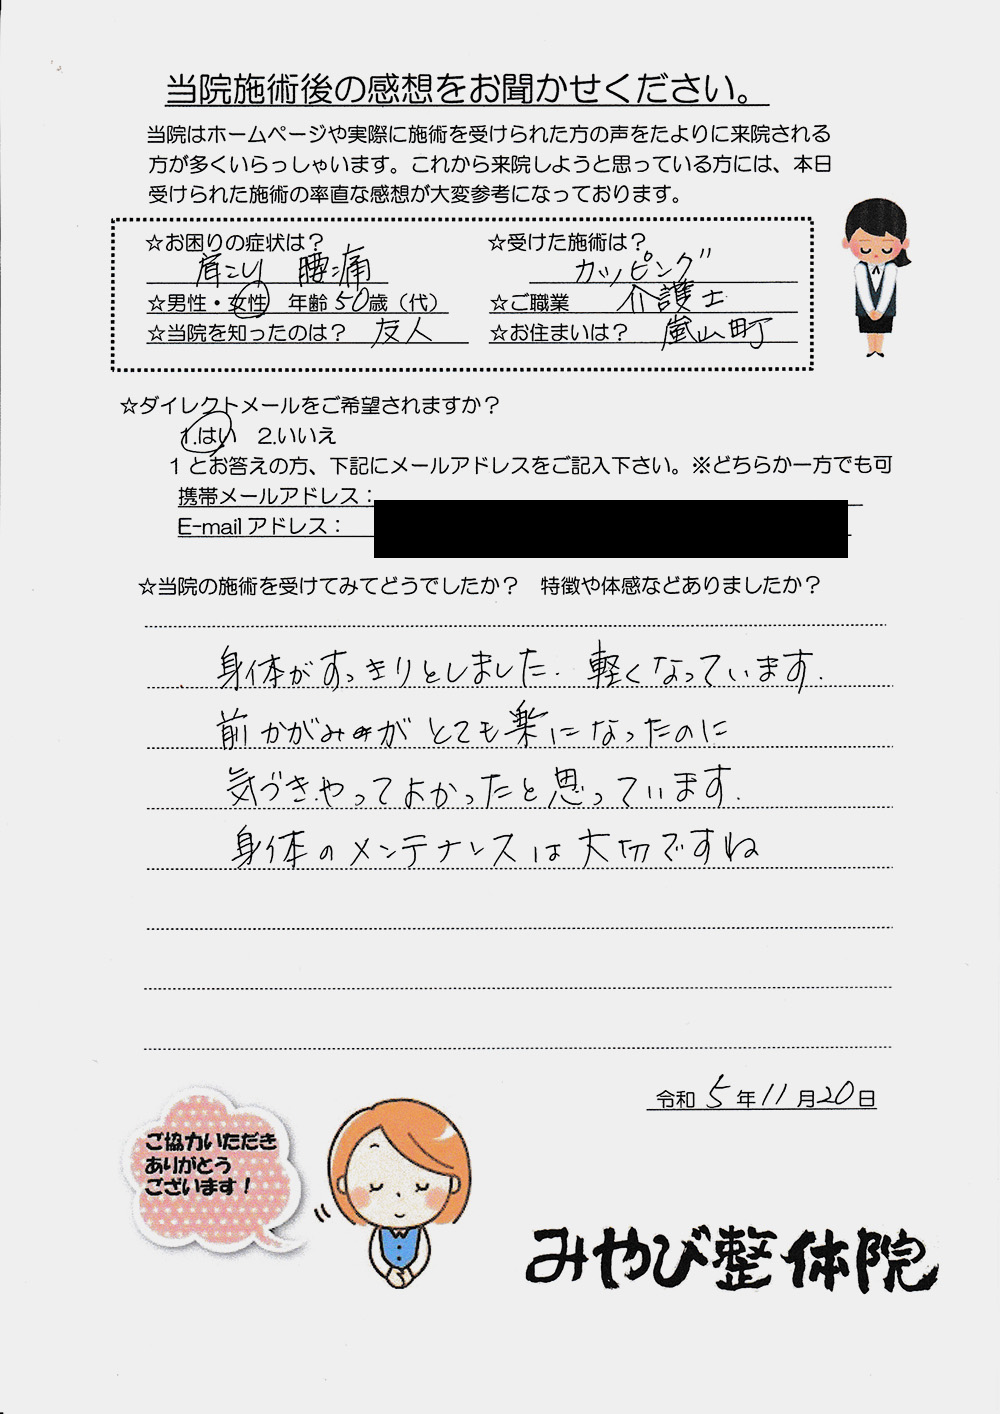 当院施術後の感想をお聞かせください。
当院はホームページや実際に施術を受けられた方の声をたよりに来院される
方が多くいらっしゃいます。これから来院しようと思っている方には、本日
受けられた施術の率直な感想が大変参考になっております。
☆お困りの症状は？
肩こり 腰痛
☆男性・女性 年齢50歳（代）
☆当院を知ったのは？ 友人
☆受けた施術は？
カッピング
☆ご職業 介護士
☆お住まいは？ 嵐山町
☆ダイレクトメールをご希望されますか？
1.はい 2.いいえ
1とお答えの方、下記にメールアドレスをご記入下さい。※どちらか一方でも可
携帯メールアドレス：
E-mailアドレス：
☆当院の施術を受けてみてどうでしたか？ 特徴や体感などありましたか？
身体がすっきりとしました. 軽くなっています.
前かがみがとても楽になったのに
気づきやってよかったと思っています.
身体のメンテナンスは大切ですね
令和5年11月20日
ご協力いただき
ありがとう
ございます！
みやび整体院